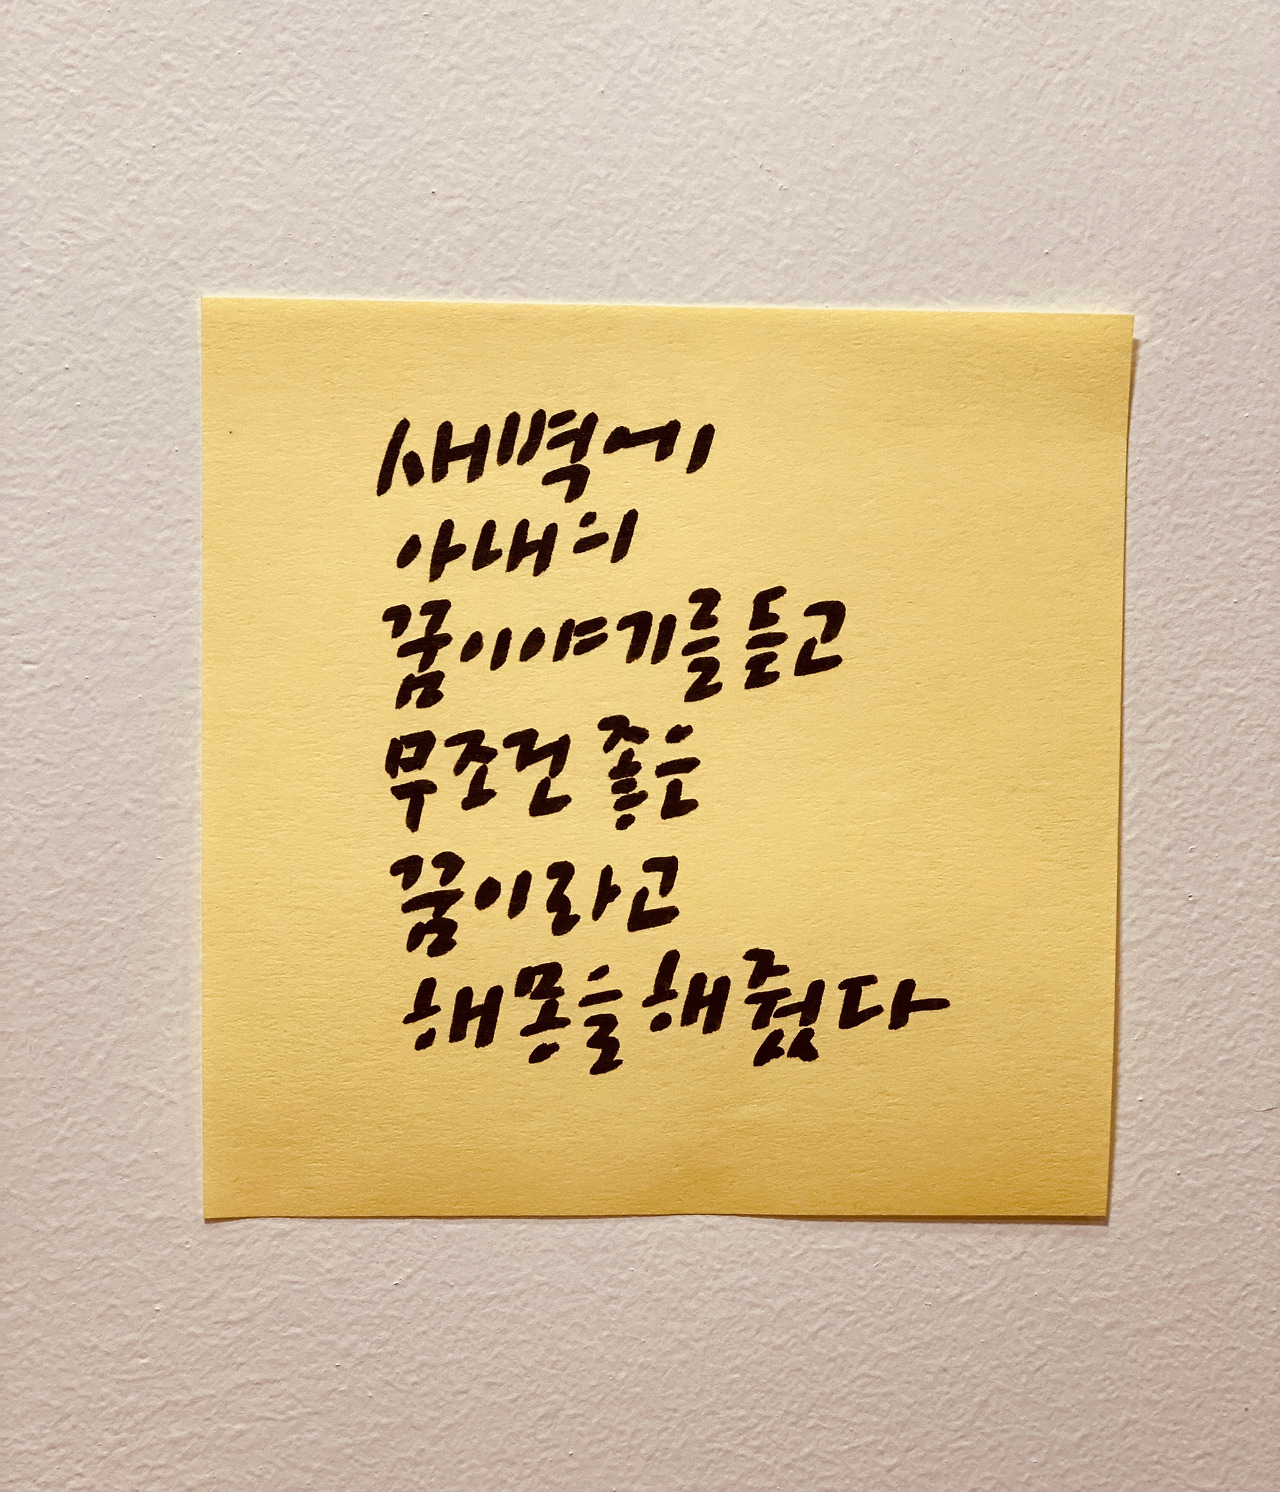 새벽에
아내의
꿈이야기를 듣고
무조건 좋은
꿈이라고
해몽을 해줬다